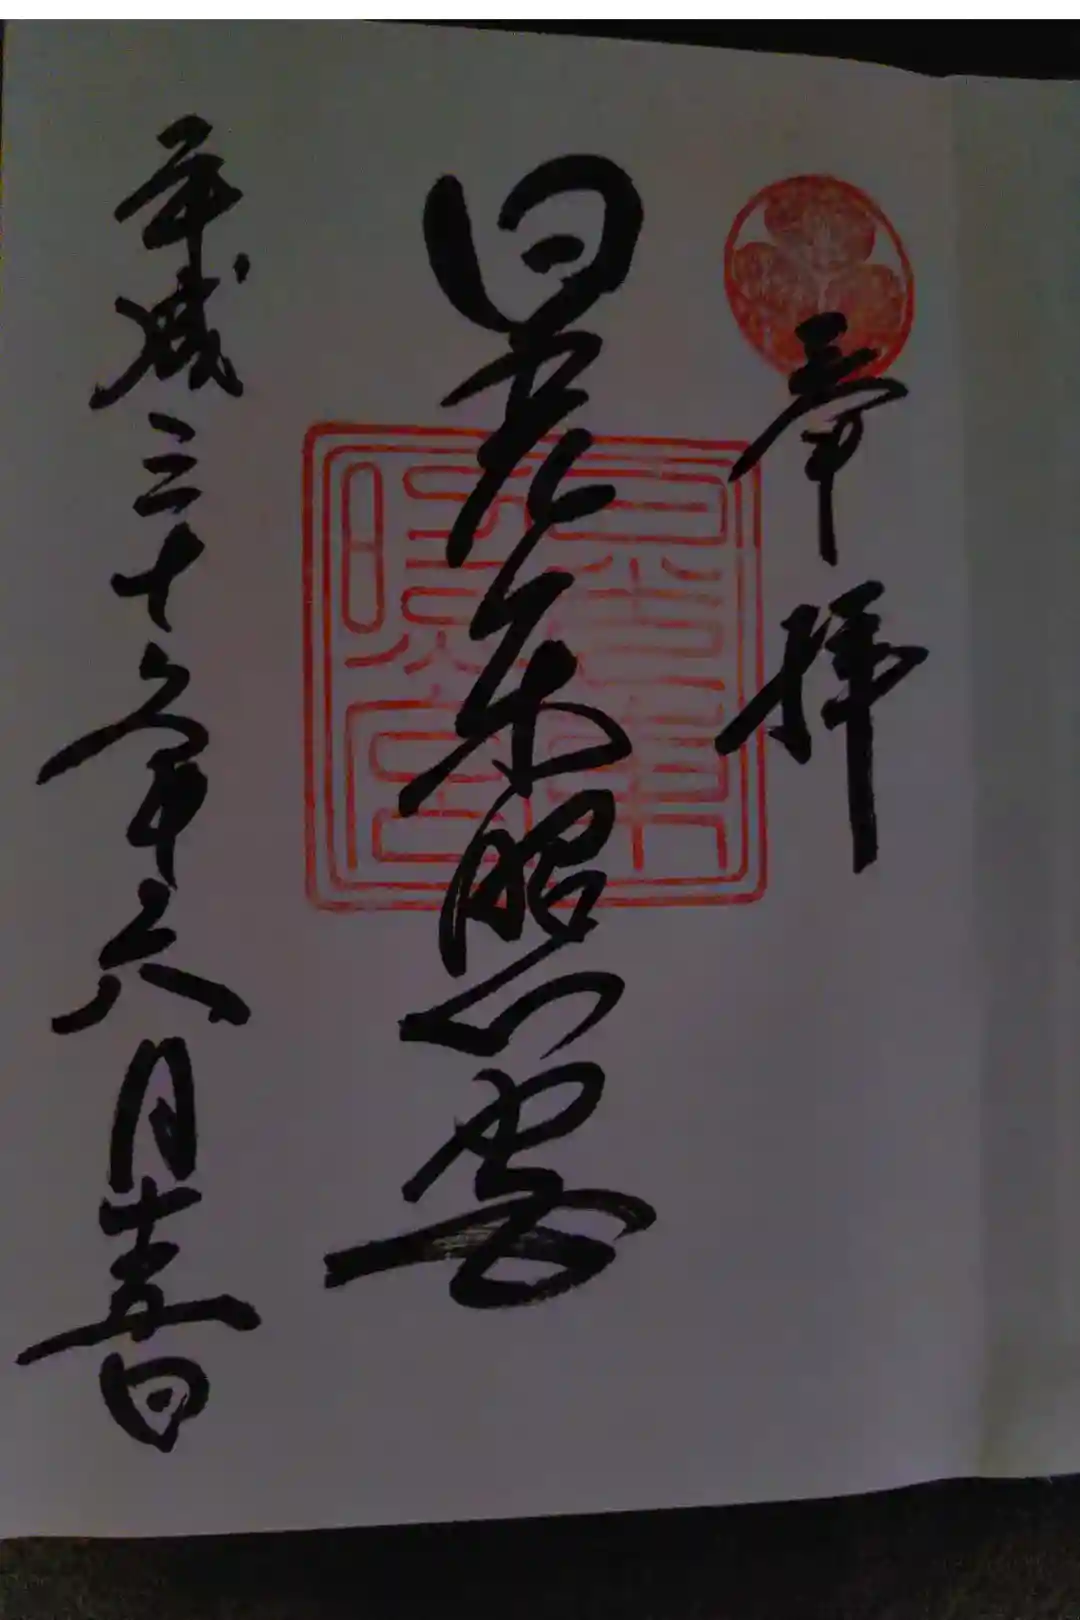 奉拝
日光東照宮
日光東
照宮
平成三十年六月十五日